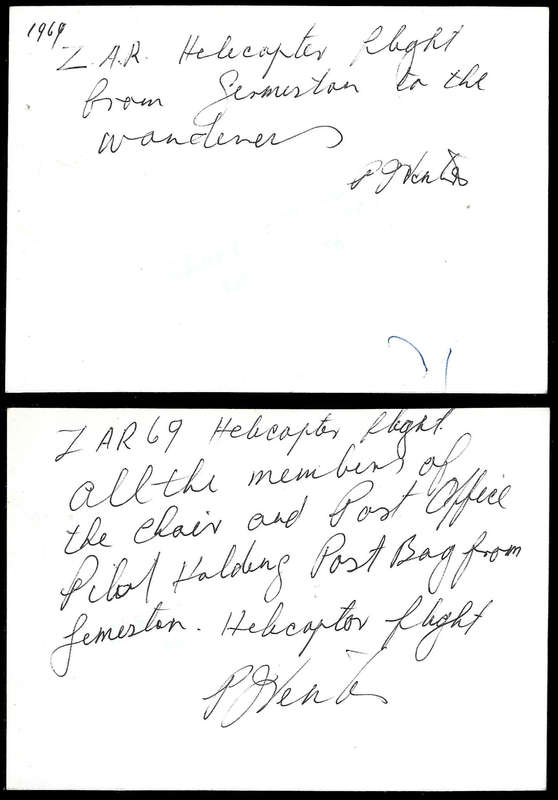 1969
Z.A.R. Helicopter flight
from Germiston to the
wanderers
P J Venter
Z AR 69 Helicopter flight.
all the members of
the Chair and Post Office
Pilot Holding Post Bag from
Germeston. Helicoptor flight
P J Venter